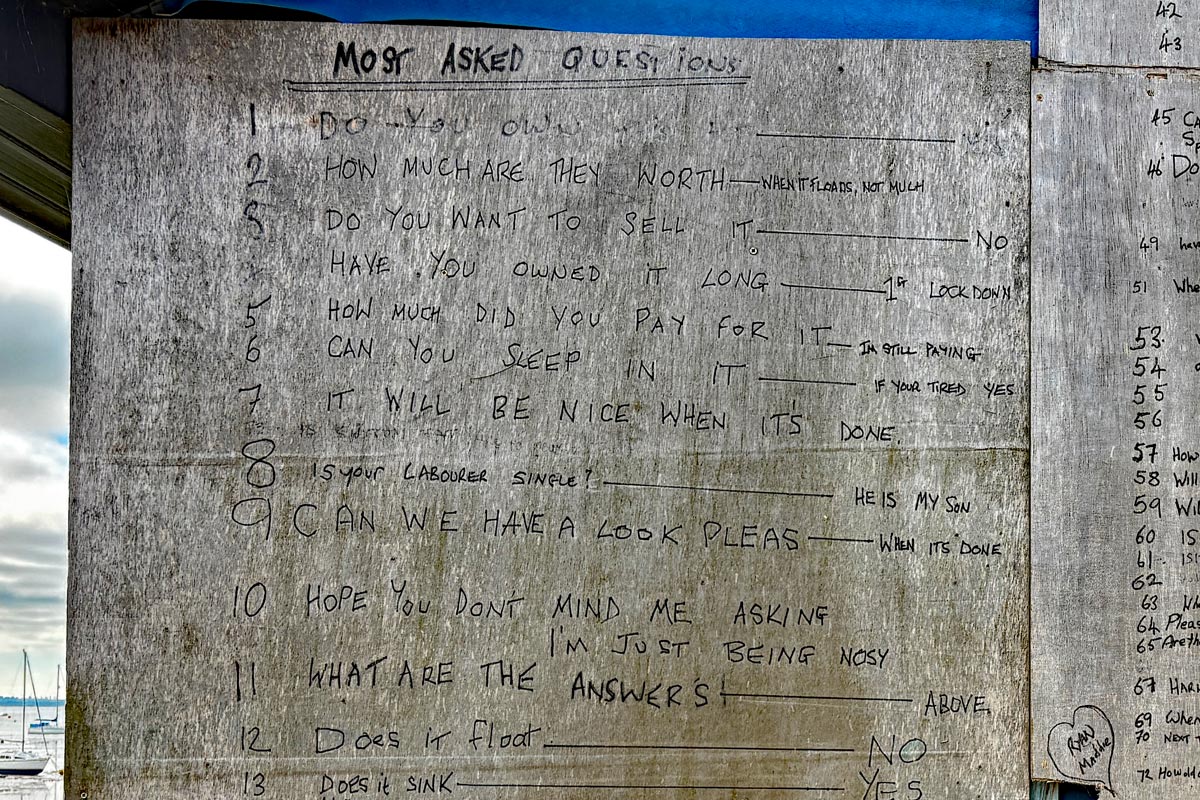 MOST ASKED QUESTIONS
1 DO YOU OWN
2 HOW MUCH ARE THEY WORTH — WHEN IT FLOADS, NOT MUCH
DO YOU WANT TO SELL IT. — NO
HAVE YOU OWNED IT LONG — 1ST LOCKDOWN
5 HOW MUCH DID YOU PAY FOR IT — IM STILL PAYING
6 CAN YOU SLEEP IN IT — IF YOUR TIRED YES
7 IT WILL BE NICE WHEN IT'S DONE.
8 IS your LABOURER SINGLE? — HE IS MY SON
9 CAN WE HAVE A LOOK PLEAS — WHEN ITS DONE
10 HOPE YOU DONT MIND ME ASKING
I'M JUST BEING NOSY
11 WHAT ARE THE ANSWER'S! — ABOVE.
12 Does it float — NO
13 DOES it SINK — YES
42
43
45
46 Do
49
51
53.
54
55
56
57 HOW
58 Will
59
60 IS
61
62
63
64
65
67
69
70 NEXT
72
RYAN